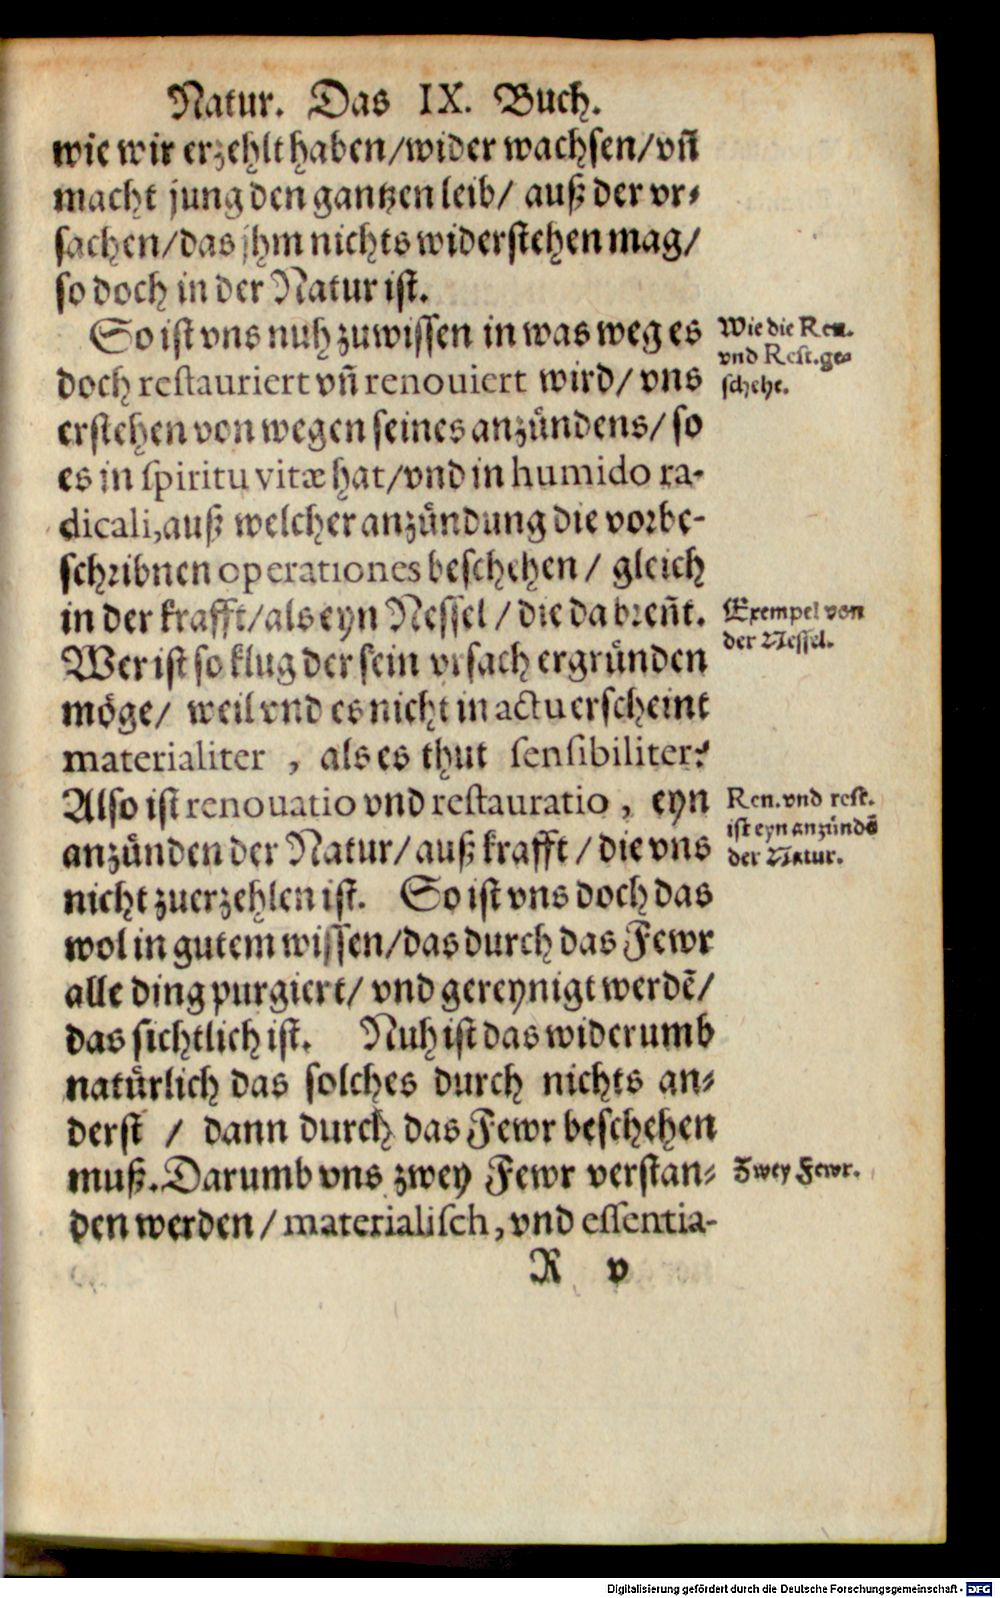 Natur. Das IX. Buch.
wie wir erzehlt haben/wider wachsen/vñ
macht jung den gantzen leib/ auß der vr⸗
sachen/das jhm nichts widerstehen mag/
so doch in der Natur ist.
So ist vns nuh zuwissen in was weg es
doch restauriert vñ renouiert wird/ vns
erstehen von wegen seines anzuͤndens/ so
es in spiritu vitæ hat/vnd in humido ra-
dicali,auß welcher anzuͤndung die vorbe-
schribnen operationes beschehen/ gleich
in der krafft/als eyn Nessel/ die da breñt.
Wer ist so klug der sein vrsach ergruͤnden
moͤge/ weil vnd es nicht in actu erscheint
materialiter , als es thut sensibiliter?
Also ist renouatio vnd restauratio , eyn
anzuͤnden der Natur/ auß krafft/ die vns
nicht zuerzehlen ist. So ist vns doch das
wol in gutem wissen/das durch das Fewr
alle ding purgiert/ vnd gereynigt werdẽ/
das sichtlich ist. Nuh ist das widerumb
natuͤrlich das solches durch nichts an⸗
derst / dann durch das Fewr beschehen
muß. Darumb vns zwey Fewr verstan⸗
den werden/ materialisch, vnd essentia-
R v
Wie die Ren.
vnd Rest. ge⸗
schehe.
Exempel von
der Nessel.
Ren. vnd rest.
ist eyn anzuͤndẽ
der Natur.
Zwey Fewr.
Digitalisierung gefördert durch die Deutsche Forschungsgemeinschaft - DFG